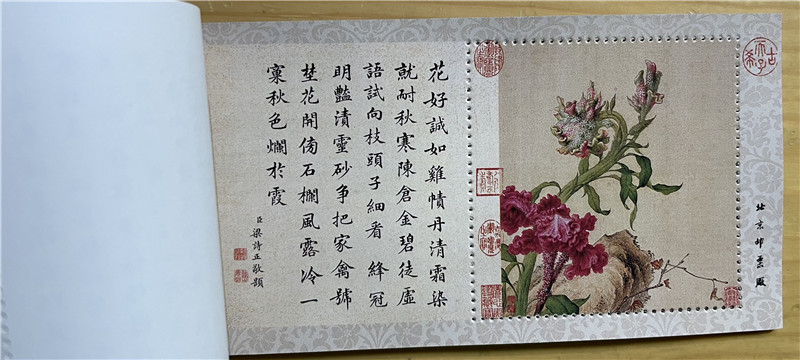 花好誠如雞幘丹清霜染
就耐秋寒陳倉金碧徒虛
語試向枝頭子細看 絳冠
明豔漬靈砂爭把家禽號
埜花開傍石欄風露冷一
窠秋色爛於霞
臣梁詩正敬題
古希天子
北京邮票厰